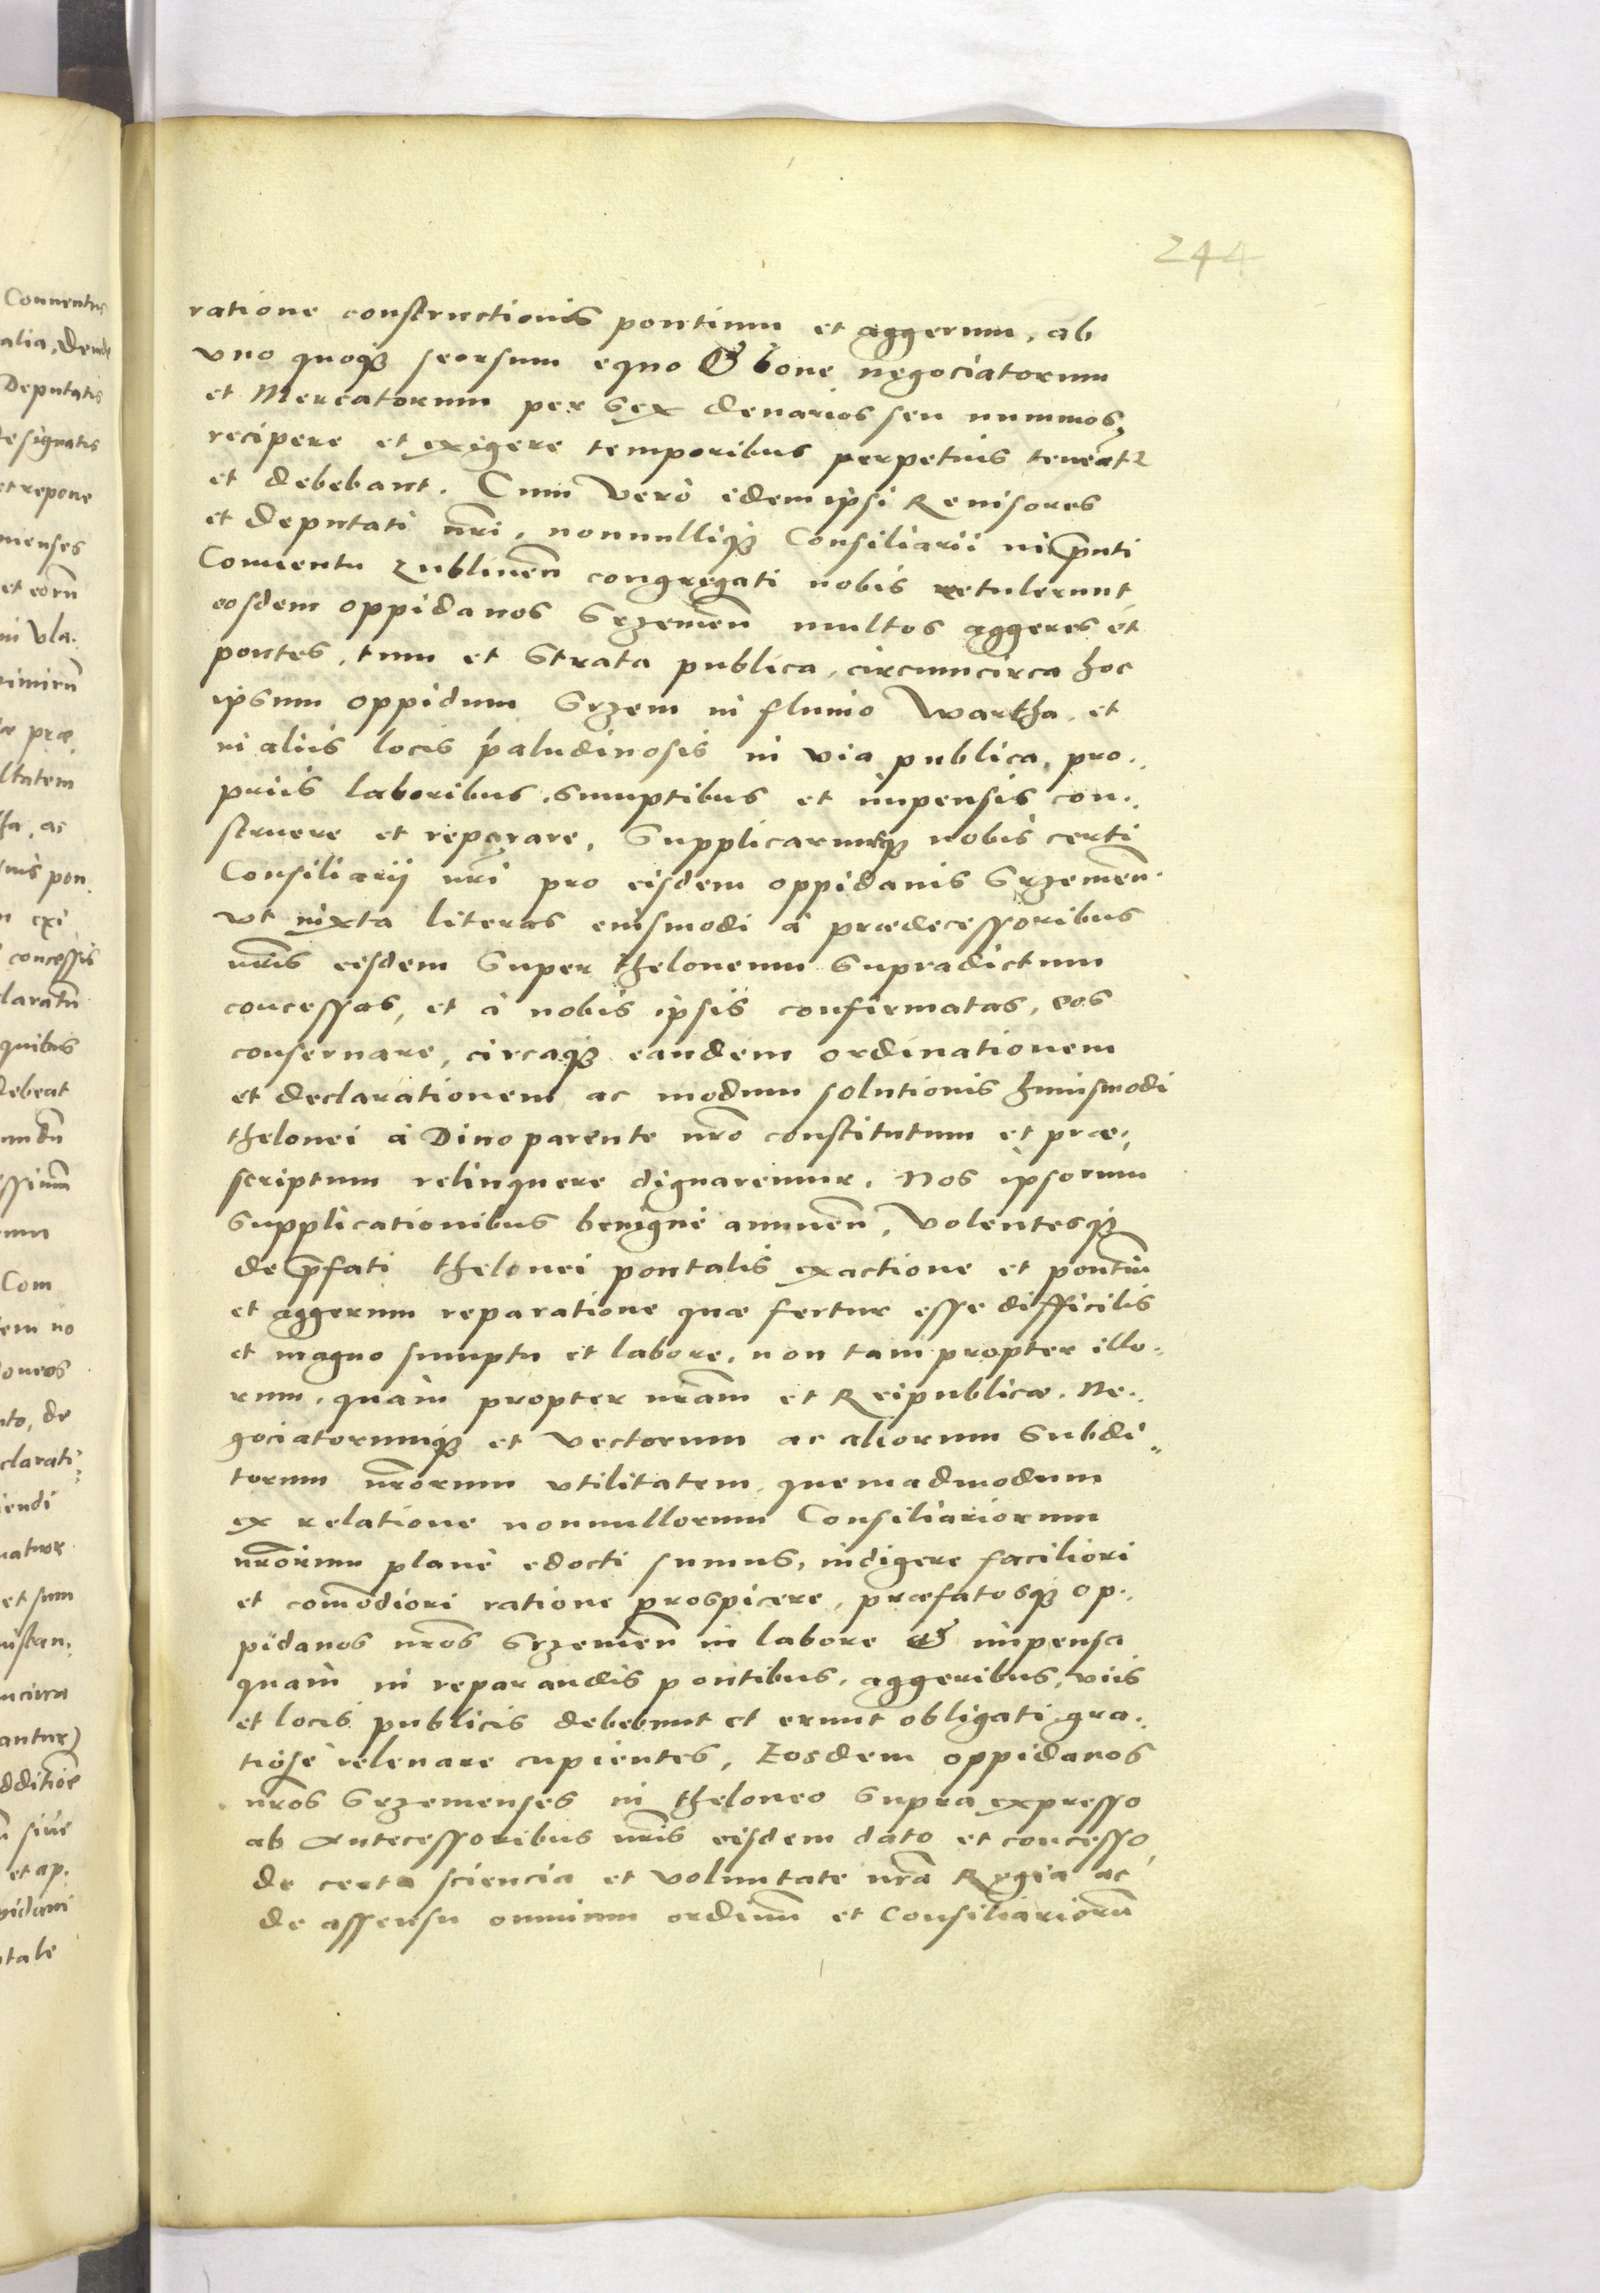 244
ratione constructionis pontium et aggerum, ab
vno quoqꝫ seorsum equo & boue negociatorum
et Mercatorum per sex denarios seu nummos,
recipere et exigere temporibus perpetuis teneātꝛ
et debebant. Cum verò idem ipsi Reuisores
et deputati nr̄i, nonnulliqꝫ Consiliarii in p̄nti
Conuentu Lublineñ congregati nobis retulerunt
eosdem oppidanos Srzemeñ multos aggeres et
pontes, tum et strata publica, circumcirca hoc
ipsum oppidum Srzem in fluuio Wartha, et
in aliis locis paludinosis in via publica, pro-
priis laboribus, sumptibus et impensis con-
struere et reparare, Supplicaruntqꝫ nobis certi
Consiliarij nr̄i pro eisdem oppidanis Srzemeñ.
vt iuxta literas eiusmodi à prædecessoribus
nr̄is eisdem super theloneum supradictum
concessas, et à nobis ipsis confirmatas, eos
conseruare, circaqꝫ eandem ordinationem
et declarationem ac modum solutionis huiusmodi
thelonei à Diuo parente nr̄o constitutum et præ-
scriptum relinquere dignaremur. Nos ipsorum
supplicationibus benignè annueñ, volentesqꝫ
de p̄fati thelonei pontalis exactione et pontiū
et aggerum reparatione quæ fertur esse difficilis
et magno sumptu et labore, non tam propter illo-
rum, quàm propter nr̄am et Reipublicæ, Ne-
gociatorumqꝫ et vectorum ac aliorum subdi-
torum nr̄orum vtilitatem, quemadmodum
ex relatione nonnullorum Consiliariorum
nr̄orum planè edocti sumus, indigere faciliori
et com̄odiori ratione prospicere, præfatosqꝫ op-
pidanos nr̄os Srzemeñ in labore & impensa
quam in reparandis pontibus, aggeribus, viis
et locis publicis debebunt et erunt obligati gra-
tiosè releuare cupientes, Eosdem oppidanos
nr̄os Srzemenses in theloneo supra expresso
ab antecessoribus nr̄is eisdem dato et concesso,
de certa sciencia et voluntate nr̄a Regia ac
de assensu omnium ordinū et Consiliariorū